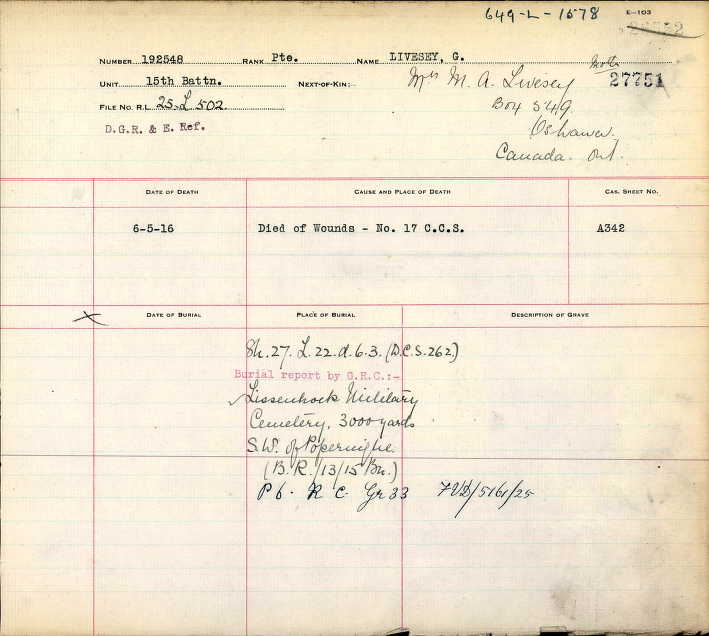 649-L-1578
E-103
NUMBER 192548 RANK Pte. NAME LIVESEY, G.
UNIT 15th Battn. NEXT-OF-KIN:- Mrs M. A. Livesey
27751
FILE NO. R.L. 25-L-502.
Box 549
D.G.R. & E. Ref.
Oshawa
Canada. Ont.
DATE OF DEATH CAUSE AND PLACE OF DEATH CAS. SHEET NO.
6-5-16 Died of Wounds - No. 17 C.C.S. A342
X DATE OF BURIAL PLACE OF BURIAL DESCRIPTION OF GRAVE
Sh. 27. L. 22. d. 6. 3. (D.C.S. 262)
Burial report by G.R.C.:-
Lissenhoek Military
Cemetery, 3000 yards
S.W. of Poperinghe.
(B.R./13/15 Bn.)
P 6. R C. Gr 33